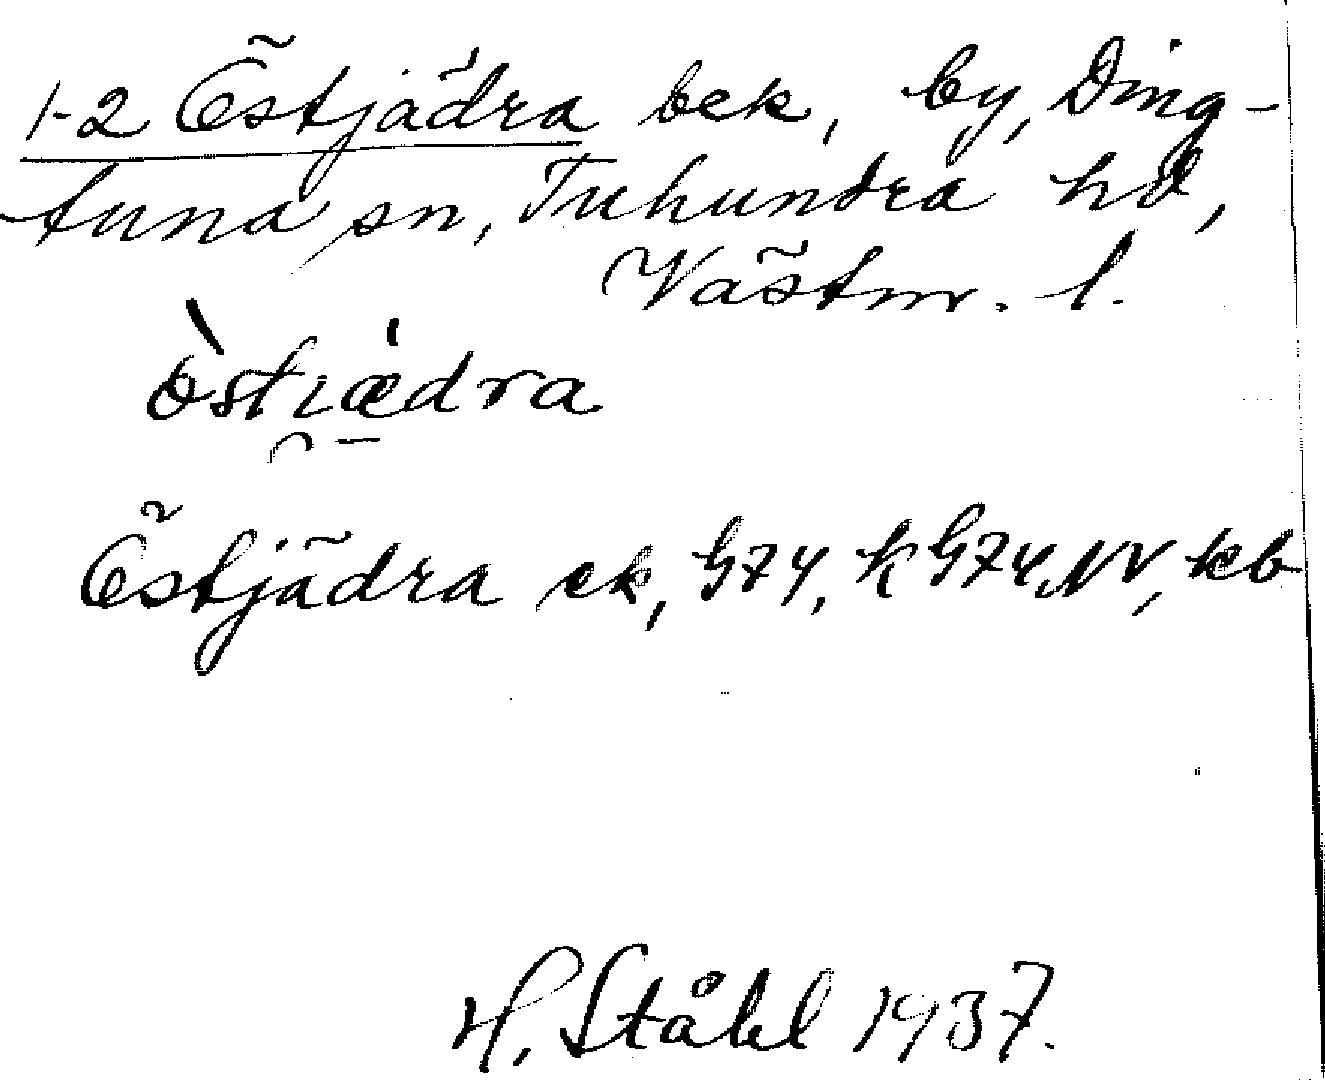 1-2 Östjädra bek, by, Ding-
tuna sn, Tuhundra hd,
Västm. l.
Östjädra ek, G74, k G74 NV, kb
H. Ståhl 1937.